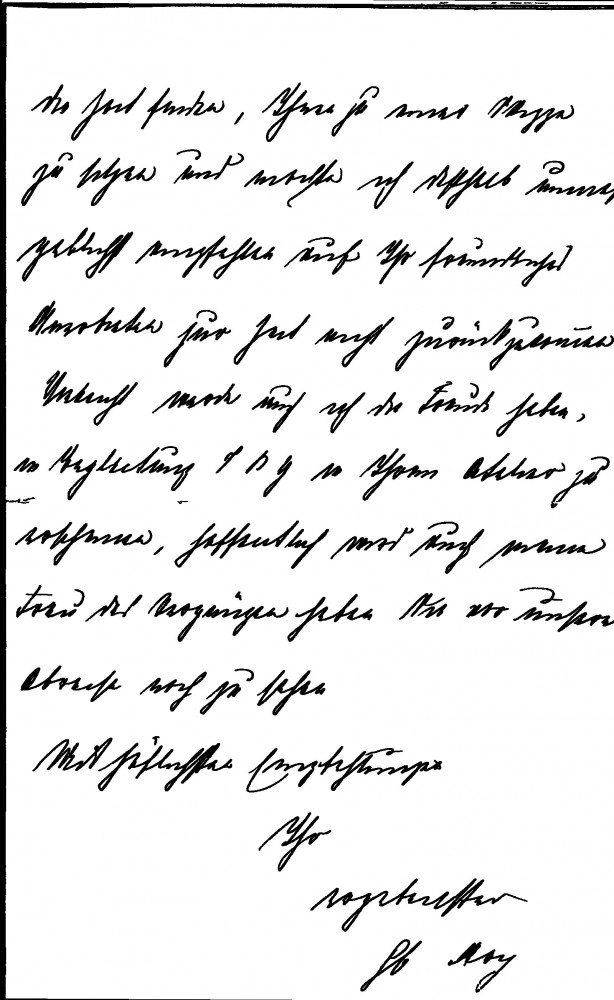 die Zeit finden, Ihnen zu einer Skizze
zu sitzen und möchte ich deßhalb
empfehlen auf Ihr freundliches
Anerbieten zur Zeit nicht zurückzukommen
Vielleicht werde auch ich die Freude haben,
in Begleitung in Ihrem Atelier zu
erscheinen, hoffentlich wird auch meine
Frau das Vergnügen haben Sie vor unserer
Abreise noch zu sehen
Mit höflichsten Empfehlungen
Ihr
ergebenster